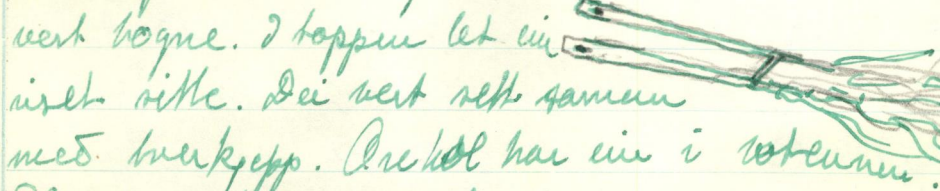 vert bogne. I toppen let ein
riset sitte. Dei vert sett saman
med tverkjepp. har ein i rotennen.